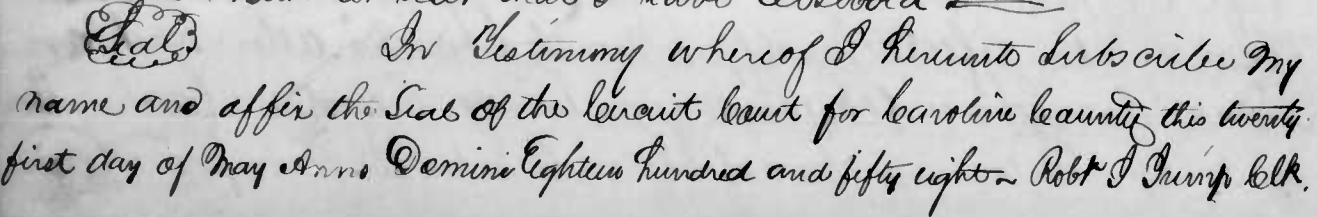 Seal In Testimony whereof I hereunto Subscribe My
name and affix the Seal of the Circuit Court for Caroline County this twenty
first day of May Anno Domini Eighteen hundred and fifty eight ~ Robt J Jump Clk.